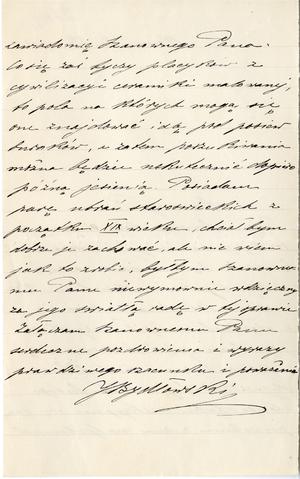 zawiadomię Szanownego Pana.
Co się zaś tyczy placyków z
cywilizacyi ceramiki malowanej,
to pola na których mogą się
one znajdować idą pod posiew
buraków, a zatem poszukiwania
można będzie uskutecznić dopiero
późną jesienią. Posiadam
parę ubrań staroświeckich z
początku XIX wieku, chciałbym
dobrze je zachować, ale nie wiem
jak to zrobić, byłbym Szanowne-
mu Panu niewymownie wdzięczny
za jego światłą radę w tej sprawie
Załączam Szanownemu Panu
serdeczne pozdrowienia i wyrazy
prawdziwego szacunku i poważania